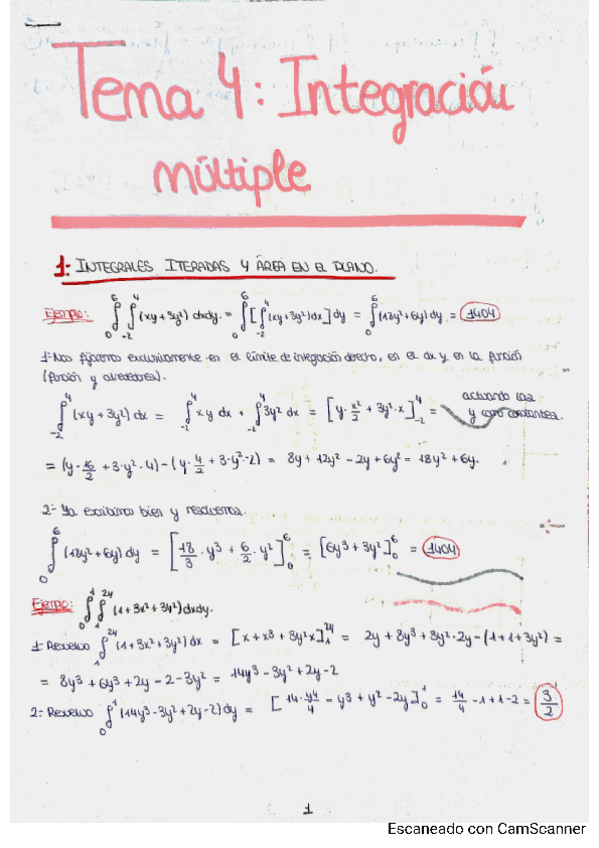 Tema 4: Integración
múltiple
1- INTEGRALES ITERADAS Y ÁREA EN EL PLANO.
Ejemplo: ∫₀⁶ ∫₋₂⁴ (xy+3y²) dxdy. = ∫₀⁶ [∫₋₂⁴ (xy+3y²)dx] dy = ∫₀⁶ (18y²+6y) dy = 1404
1- Nos fijamos exclusivamente en el límite de integración derecho, en el dx y en la función
(función y alrededores).
∫₋₂⁴ (xy+3y²) dx = ∫₋₂⁴ xy dx + ∫₋₂⁴ 3y² dx = [y·x²/2 + 3y²·x]₋₂⁴ =
actuando las
y como constantes.
= (y·16/2 + 3·y²·4) - (y·4/2 + 3·y²·-2) = 8y + 12y² - 2y + 6y² = 18y² + 6y.
2- Ya escribimos bien y resolvemos.
∫₀⁶ (18y²+6y) dy = [18/3 · y³ + 6/2 · y²]₀⁶ = [6y³ + 3y²]₀⁶ = 1404
Ejemplo: ∫₀¹ ∫₁²ʸ (1+3x²+3y²)dxdy.
1- Resuelvo ∫₁²ʸ (1+3x²+3y²) dx = [x+x³+3y²x]₁²ʸ = 2y + 8y³ + 3y²·2y - (1+1+3y²) =
= 8y³ + 6y³ + 2y - 2 - 3y² = 14y³ - 3y² + 2y - 2
2- Resuelvo ∫₀¹ (14y³-3y²+2y-2)dy = [14·y⁴/4 - y³ + y² - 2y]₀¹ = 14/4 - 1 + 1 - 2 = 3/2
1
Escaneado con CamScanner